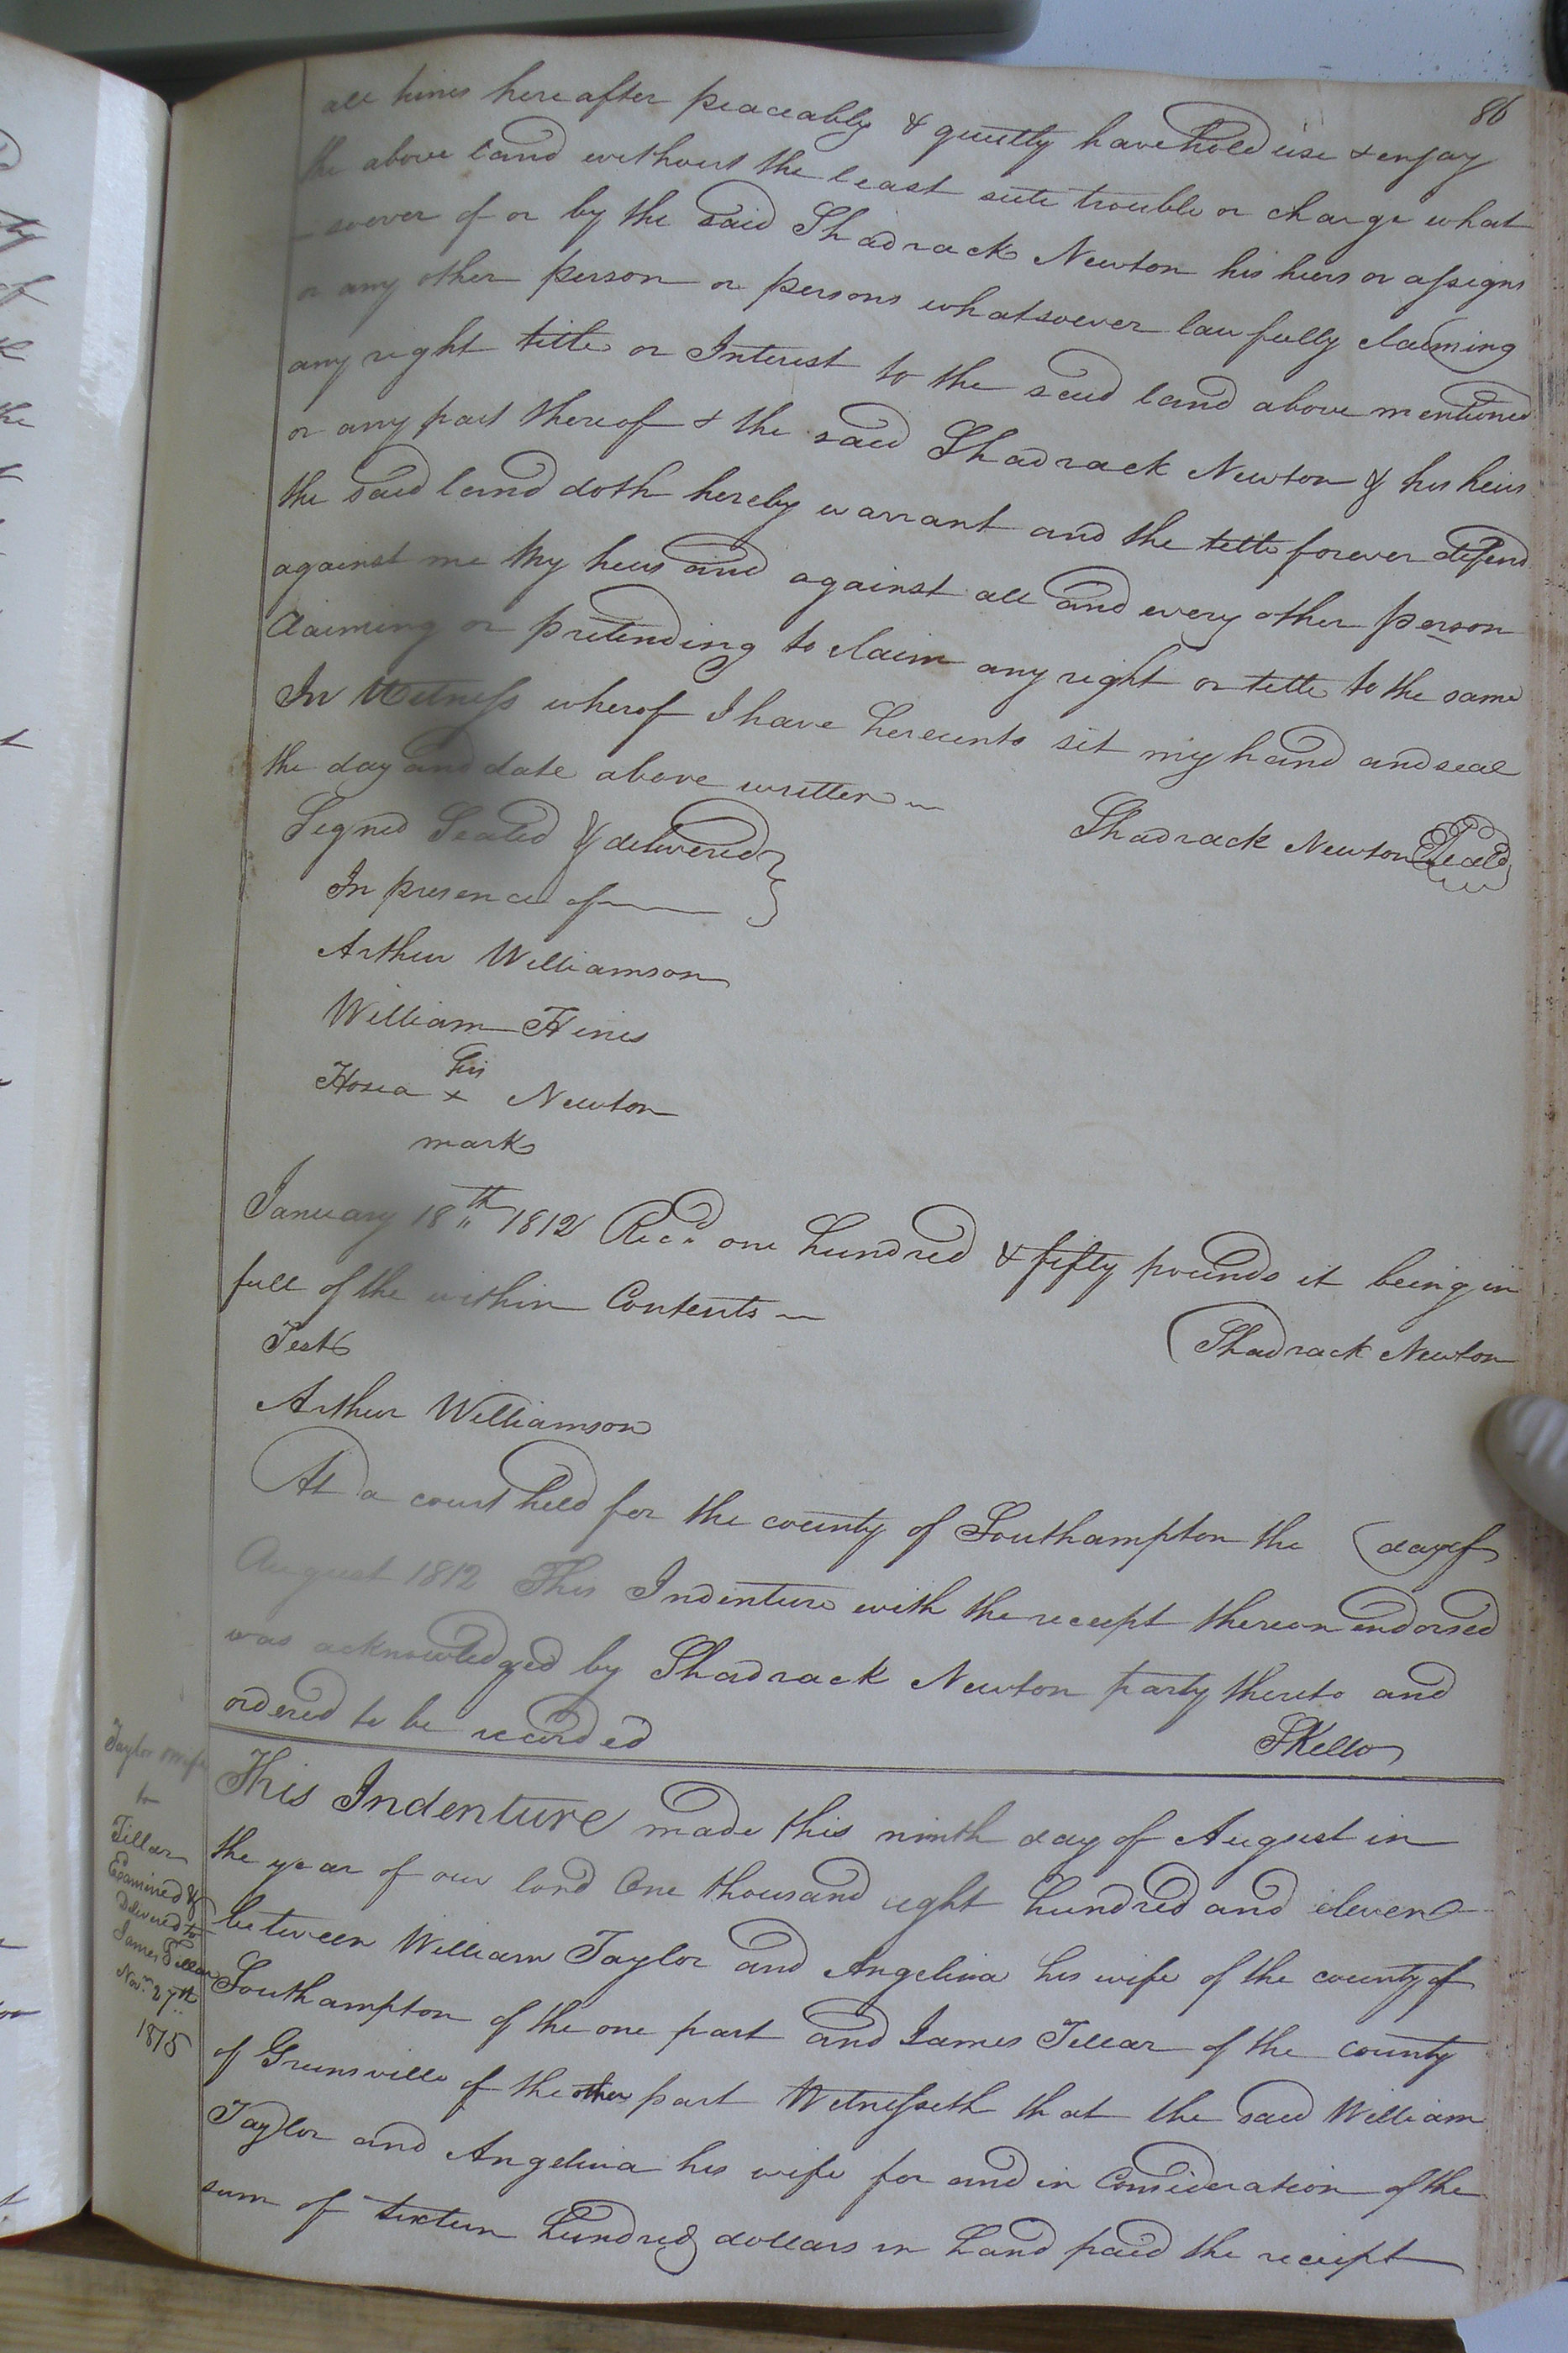 86
all times hereafter peaceably & quietly have hold use & enjoy
the above land without the least suite trouble or charge what
-soever of or by the said Shadrack Newton his heirs or assigns
or any other person or persons whatsoever lawfully claiming
any right title or Interest to the said land above mentioned
or any part thereof & the said Shadrack Newton & his heirs
the said land doth hereby warrant and the title forever defend
against me My heirs and against all and every other person
Claiming or pretending to claim any right or title to the same
In Witness wherof I have hereunto set my hand and seal
the day and date above written
Signed Sealed & delivered } Shadrack Newton Seal
In presence of
Arthur Williamson
William Hines
his
Hosea x Newton
mark
January 18th 1812 Recd one hundred & fifty pounds it being in
full of the within Contents
Test Shadrack Newton
Arthur Williamson
At a court held for the county of Southampton the day of
August 1812 This Indenture with the receipt thereon endorsed
was acknowledged by Shadrack Newton party thereto and
ordered to be recorded
SKello
Taylor & wife
to
Tillar
Examined &
Delivered to
James Tillar
Novr. 27th
1815
This Indenture made this ninth day of August in
the year of our lord One thousand eight hundred and eleven
between William Taylor and Angelina his wife of the county of
Southampton of the one part and James Tillar of the county
of Greensville of the other part Witnesseth that the said William
Taylor and Angelina his wife for and in Consideration of the
sum of sixteen hundred dollars in hand paid the receipt